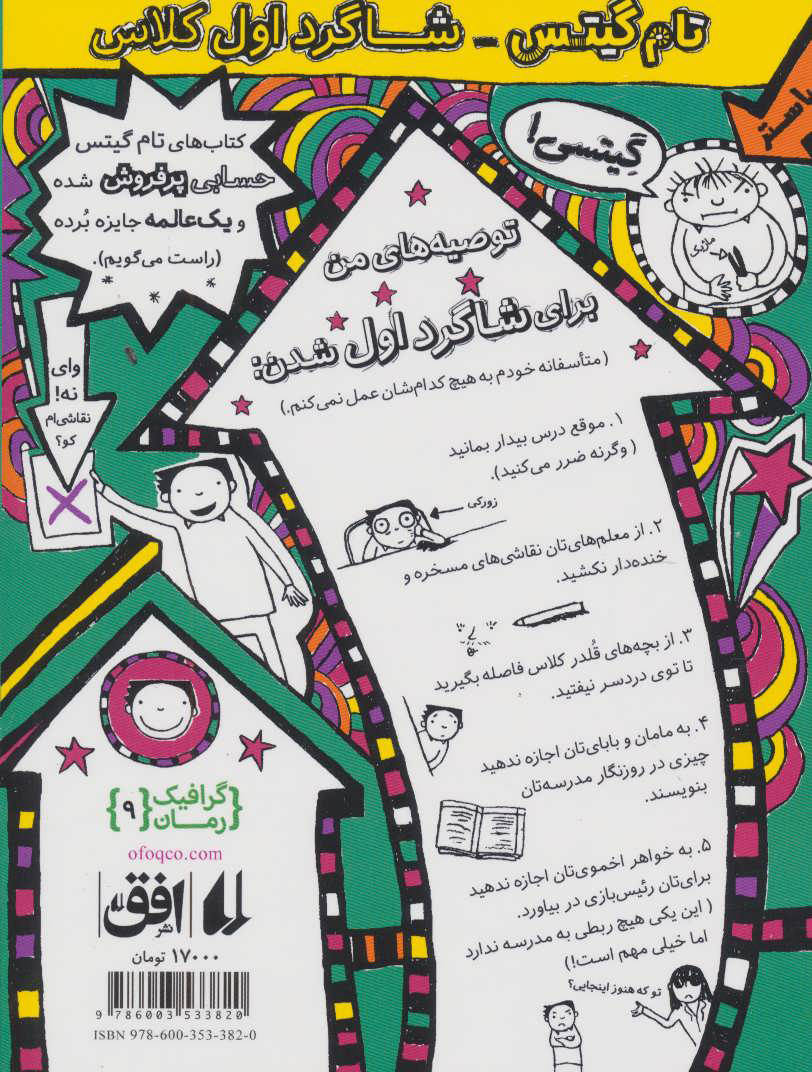 تام گیتس - شاگرد اول کلاس
کتاب‌های تام گیتس
حسابی پرفروش شده
و یک‌عالمه جایزه بُرده
(راست می‌گویم).
گیتسی!
توصیه‌های من
برای شاگرد اول شدن:
(متأسفانه خودم به هیچ کدام‌شان عمل نمی‌کنم.)
وای
نه!
نقاشی‌ام
کو؟
۱. موقع درس بیدار بمانید
(وگرنه ضرر می‌کنید).
زورکی
۲. از معلم‌های‌تان نقاشی‌های مسخره و
خنده‌دار نکشید.
۳. از بچه‌های قُلدر کلاس فاصله بگیرید
تا توی دردسر نیفتید.
۴. به مامان و بابای‌تان اجازه ندهید
چیزی در روزنگار مدرسه‌تان
بنویسند.
۵. به خواهر اخموی‌تان اجازه ندهید
برای‌تان رئیس‌بازی در بیاورد.
(این یکی هیچ ربطی به مدرسه ندارد
اما خیلی مهم است!)
تو که هنوز اینجایی؟
گرافیک
رمان {۹}
ofoqco.com
نشر افق
۱۷۰۰۰ تومان
9 786003 533820
ISBN 978-600-353-382-0